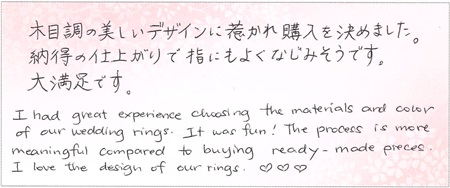 木目調の美しいデザインに惹かれ購入を決めました。
納得の仕上がりで指にもよくなじみそうです。
大満足です。
I had great experience choosing the materials and color
of our wedding rings. It was fun! The process is more
meaningful compared to buying ready-made pieces.
I love the design of our rings. ♡♡♡